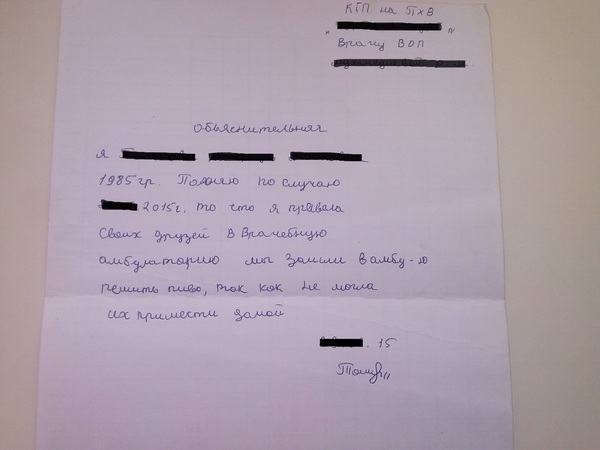 КГП на ПХВ
" "
Врачу ВОП
Объяснительная
я
1985гр. Поясняю по случаю
2015г. то что я привела
своих друзей в Врачебную
амбулаторию мы зашли в амбу-ю
попить пиво, так как не могла
их привести домой
. 15